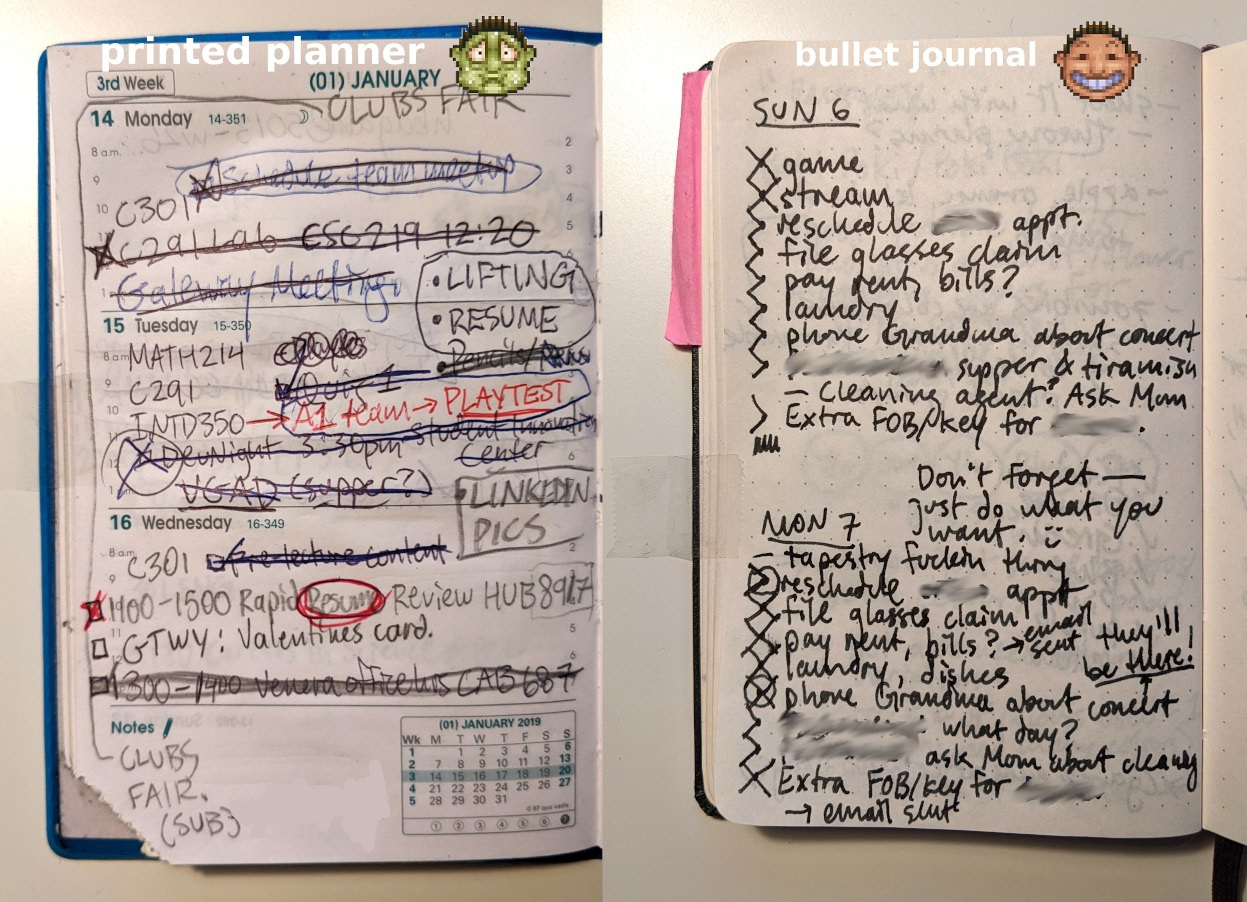 printed planner
3rd Week
(01) JANUARY
CLUBS FAIR
14 Monday 14-351
8 a.m.
2
9
3
Schedule team meetup
10
C301
5
C291 Lab ESC219 12:20
Gateway Meeting
• LIFTING
• RESUME
15 Tuesday 15-350
8 a.m.
MATH214
Pencils/
9
C291
Quiz 1
10
INTD350 → A1 team → PLAYTEST
DevNight 5:30pm Student Innovation
Center
6
VGAD (supper?)
LINKEDIN
PICS
16 Wednesday 16-349
8 a.m.
2
C301 Pre-lecture content
9
1400-1500 Rapid Resume Review HUB8917
11
5
GTWY: Valentines card.
6
1300-1400 office hrs CAB 687
Notes
CLUBS
FAIR.
(SUB)
(01) JANUARY 2019
Wk M T W T F S S
1 1 2 3 4 5 6
2 7 8 9 10 11 12 13
3 14 15 16 17 18 19 20
4 21 22 23 24 25 26 27
5 28 29 30 31
① ② ③ ④ ⑤ ⑥ ❼
bullet journal
SUN 6
game
stream
reschedule appt.
file glasses claim
pay rent, bills?
laundry
phone Grandma about concert
supper & tiramisu
– Cleaning agent? Ask Mom
Extra FOB/key for .
Don't forget —
just do what you
want. :)
MON 7
– tapestry thing
reschedule appt
file glasses claim
pay rent, bills? → email sent
they'll
be there!
laundry, dishes
phone Grandma about concert
what day?
ask Mom about cleaning
Extra FOB/key for
→ email sent